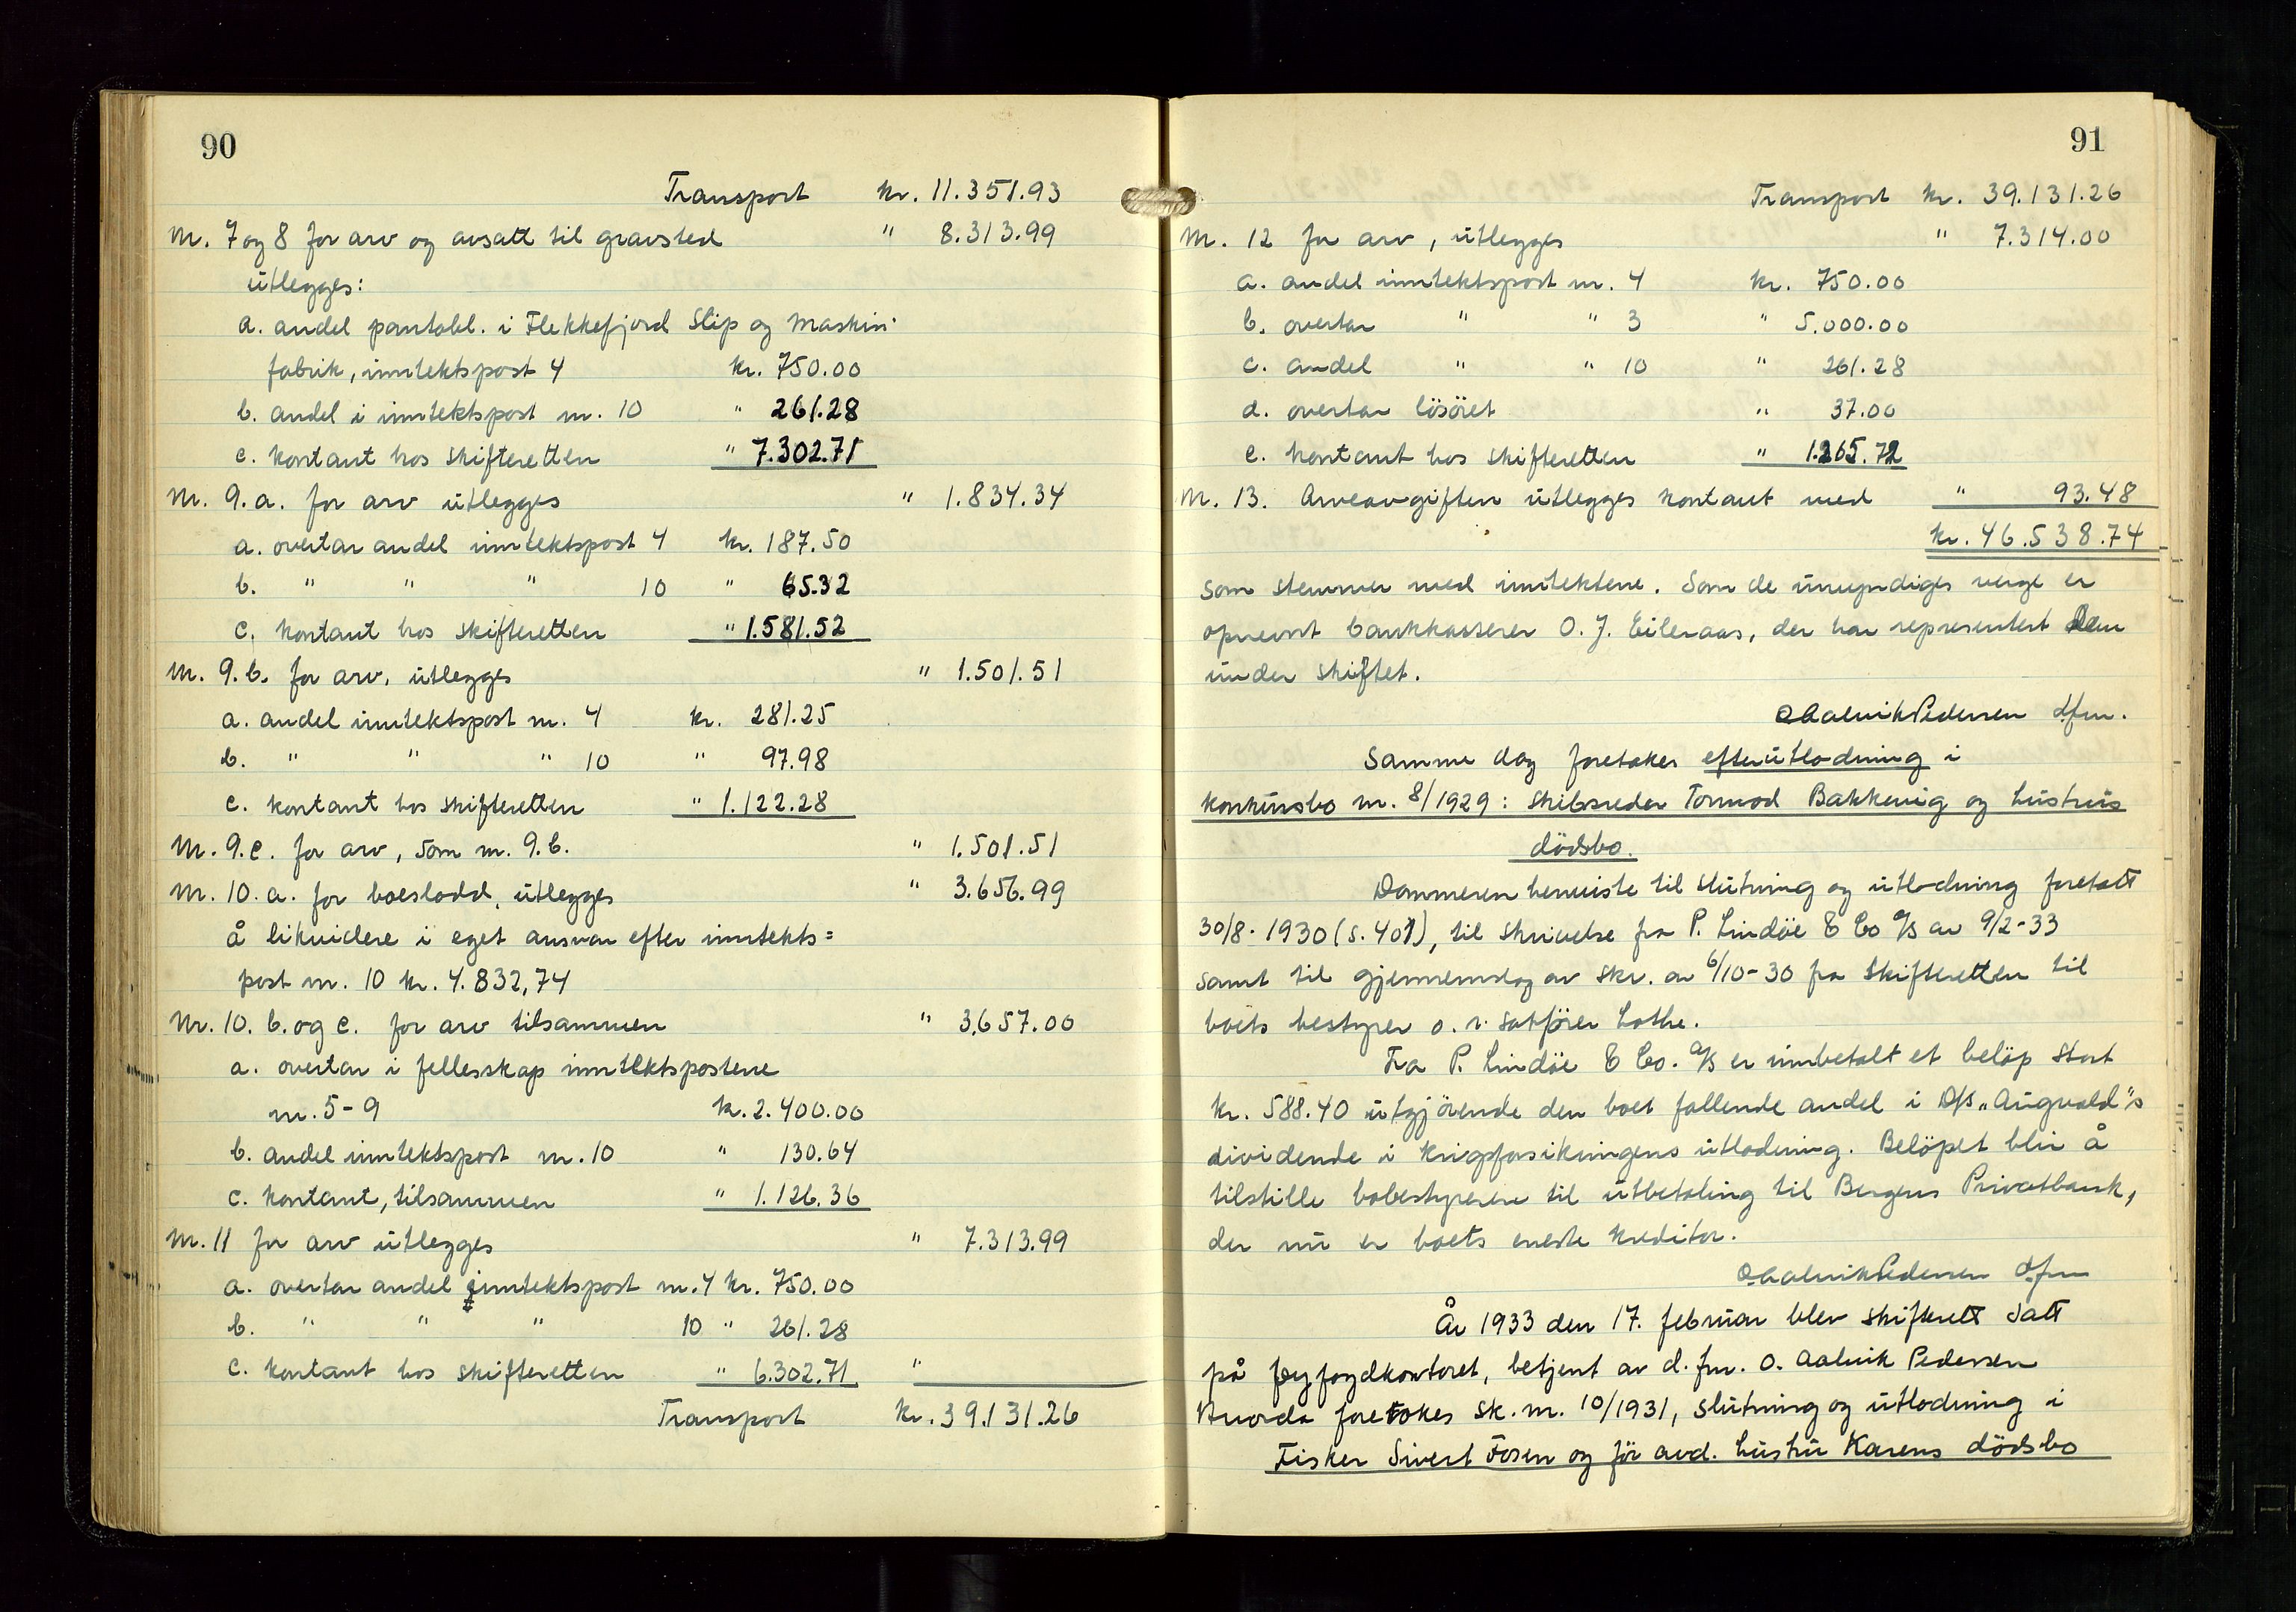 90
Transport kr. 11.351.93
Nr. 7 og 8 for arv og avsatt til gravsted " 8.313.99
utlegges:
a. andel pantobl. i Flekkefjord Slip og Maskin-
fabrik, inntektspost 4 kr. 750.00
b. andel i inntektspost nr. 10 " 261.28
c. kontant hos skifteretten " 7.302.71
Nr. 9.a. for arv utlegges " 1.834.34
a. overtar andel inntektspost 4 kr. 187.50
b. " " " 10 " 65.32
c. kontant hos skifteretten " 1.581.52
Nr. 9.b. for arv, utlegges " 1.501.51
a. andel inntektspost nr. 4 kr. 281.25
b. " " " 10 " 97.98
c. kontant hos skifteretten " 1.122.28
Nr. 9.c. for arv, som nr. 9.b. " 1.501.51
Nr. 10.a. for boeslodd, utlegges " 3.656.99
å likvidere i eget ansvar efter inntekts=
post nr. 10 kr. 4.832,74
Nr. 10. b. og c. for arv tilsammen " 3.657.00
a. overtar i fellesskap inntektspostene
nr. 5-9 kr. 2.400.00
b. andel inntektspost nr. 10 " 130.64
c. kontant, tilsammen " 1.126.36
Nr. 11 for arv utlegges " 7.313.99
a. overtar andel inntektspost nr. 4 kr. 750.00
b. " " " 10 " 261.28
c. kontant hos skifteretten " 6.302.71 "
Transport kr. 39.131.26
91
Transport kr. 39.131.26
Nr. 12 for arv, utlegges " 7.314.00
a. andel inntektspost nr. 4 kr. 750.00
b. overtar " " 3 " 5.000.00
c. andel " " 10 " 261.28
d. overtar lösöret " 37.00
e. kontant hos skifteretten " 1.265.72
Nr. 13. Arveavgiften utlegges kontant med " 93.48
kr. 46.538.74
som stemmer med inntektene. Som de umyndiges verge er
opnevnt bankkasserer O. J. Eileraas, der har representert dem
under skiftet.
O Aalvik Pedersen dfm.
Samme dag foretakes efterutlodning i
konkursbo nr. 8/1929: Skibsreder Tormod Bakkevig og hustrus
dödsbo.
Dommeren henviste til slutning og utlodning foretatt
30/8-1930 (s. 401), til skrivelse fra P. Lindöe & Co A/S av 9/2-33
samt til gjennemslag av skr. av 6/10-30 fra Skifteretten til
boets bestyrer o. r. sakförer Lothe.
Fra P. Lindöe & Co. A/S er innbetalt et belöp stort
kr. 588.40 utgjörende den boet fallende andel i D/S „Augvald"s
dividende i krigsforsikringens utlodning. Belöpet blir å
tilstille bobestyreren til utbetaling til Bergens Privatbank,
der nu er boets eneste kreditor.
O Aalvik Pedersen dfm
År 1933 den 17. februar blev skifterett satt
på byfogdkontoret, betjent av d. fm. O. Aalvik Pedersen
Hvorda foretokes sk. nr. 10/1931, slutning og utlodning i
Fisker Sivert Fosen og för avd. hustru Karens dödsbo